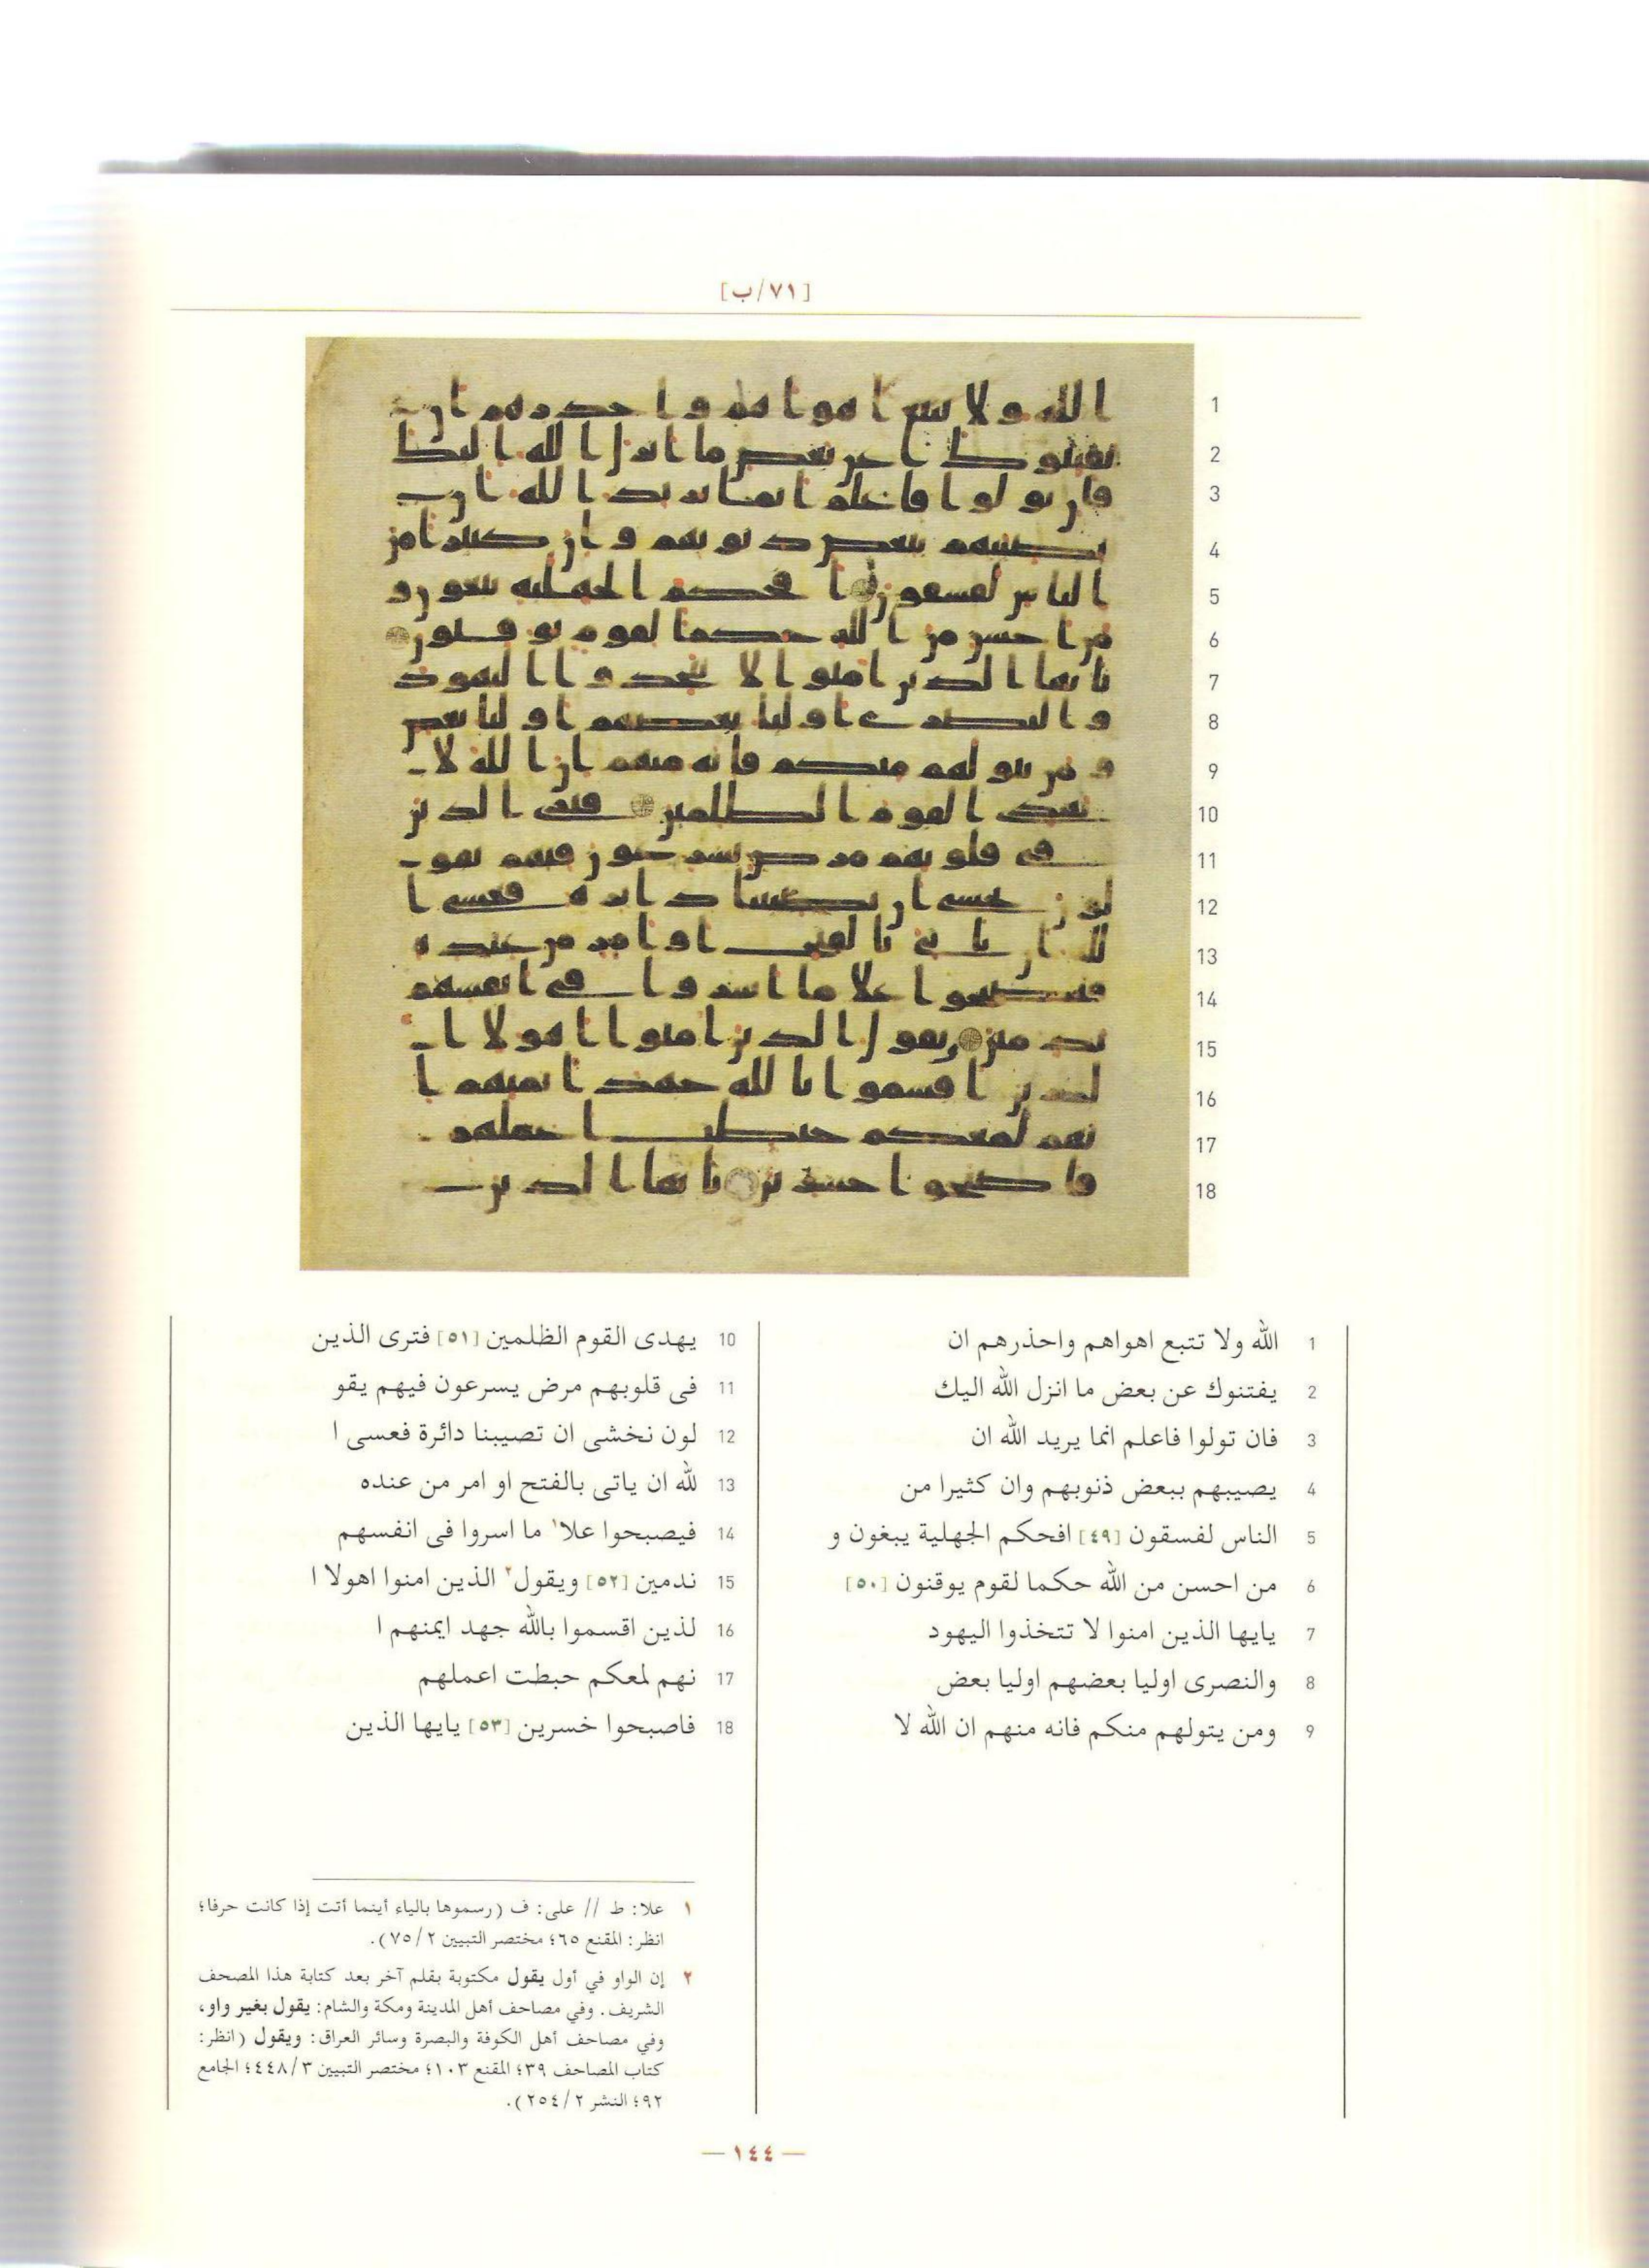 [٧١/ب]
1 الله ولا تتبع اهواهم واحذرهم ان
2 يفتنوك عن بعض ما انزل الله اليك
3 فان تولوا فاعلم انما يريد الله ان
4 يصيبهم ببعض ذنوبهم وان كثيرا من
5 الناس لفسقون [٤٩] افحكم الجهلية يبغون و
6 من احسن من الله حكما لقوم يوقنون [٥٠]
7 يايها الذين امنوا لا تتخذوا اليهود
8 والنصرى اوليا بعضهم اوليا بعض
9 ومن يتولهم منكم فانه منهم ان الله لا
10 يهدى القوم الظلمين [٥١] فترى الذين
11 فى قلوبهم مرض يسرعون فيهم يقو
12 لون نخشى ان تصيبنا دائرة فعسى ا
13 لله ان ياتى بالفتح او امر من عنده
14 فيصبحوا علا١ ما اسروا فى انفسهم
15 ندمين [٥٢] ويقول٢ الذين امنوا اهولا ا
16 لذين اقسموا بالله جهد ايمنهم ا
17 نهم لمعكم حبطت اعملهم
18 فاصبحوا خسرين [٥٣] يايها الذين
١ علا: ط // على: ف (رسموها بالياء أينما أتت إذا كانت حرفا؛
انظر: المقنع ٦٥؛ مختصر التبيين ٧٥/٢).
٢ إن الواو في أول يقول مكتوبة بقلم آخر بعد كتابة هذا المصحف
الشريف. وفي مصاحف أهل المدينة ومكة والشام: يقول بغير واو،
وفي مصاحف أهل الكوفة والبصرة وسائر العراق: ويقول (انظر:
كتاب المصاحف ٣٩؛ المقنع ١٠٣؛ مختصر التبيين ٤٤٨/٣؛ الجامع
٩٢؛ النشر ٢٥٤/٢).
— ١٤٤ —